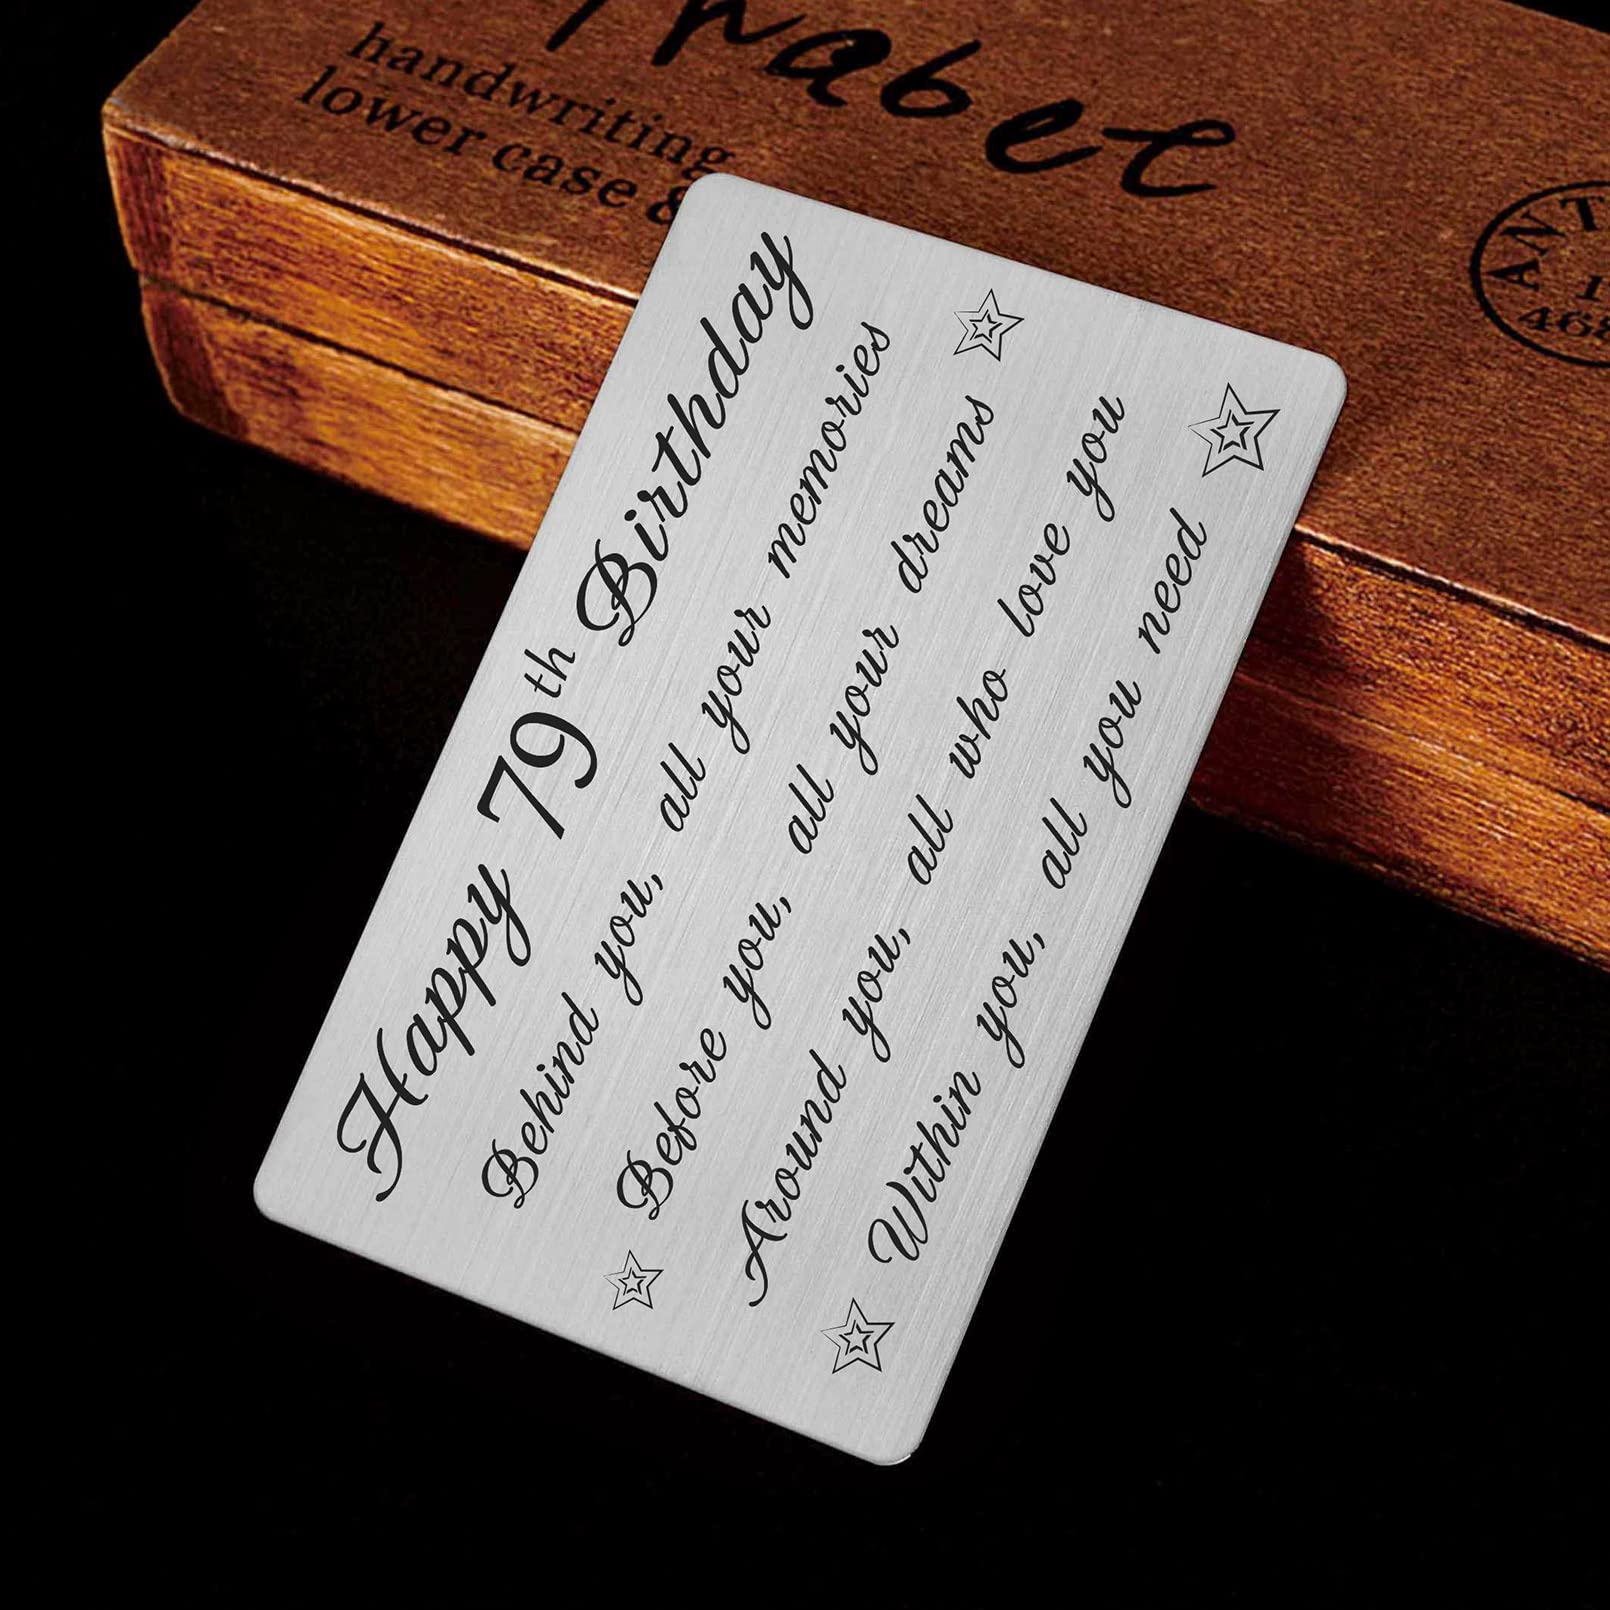 handwriting
lower case &
Happy 79th Birthday
Behind you, all your memories
Before you, all your dreams
Around you, all who love you
Within you, all you need